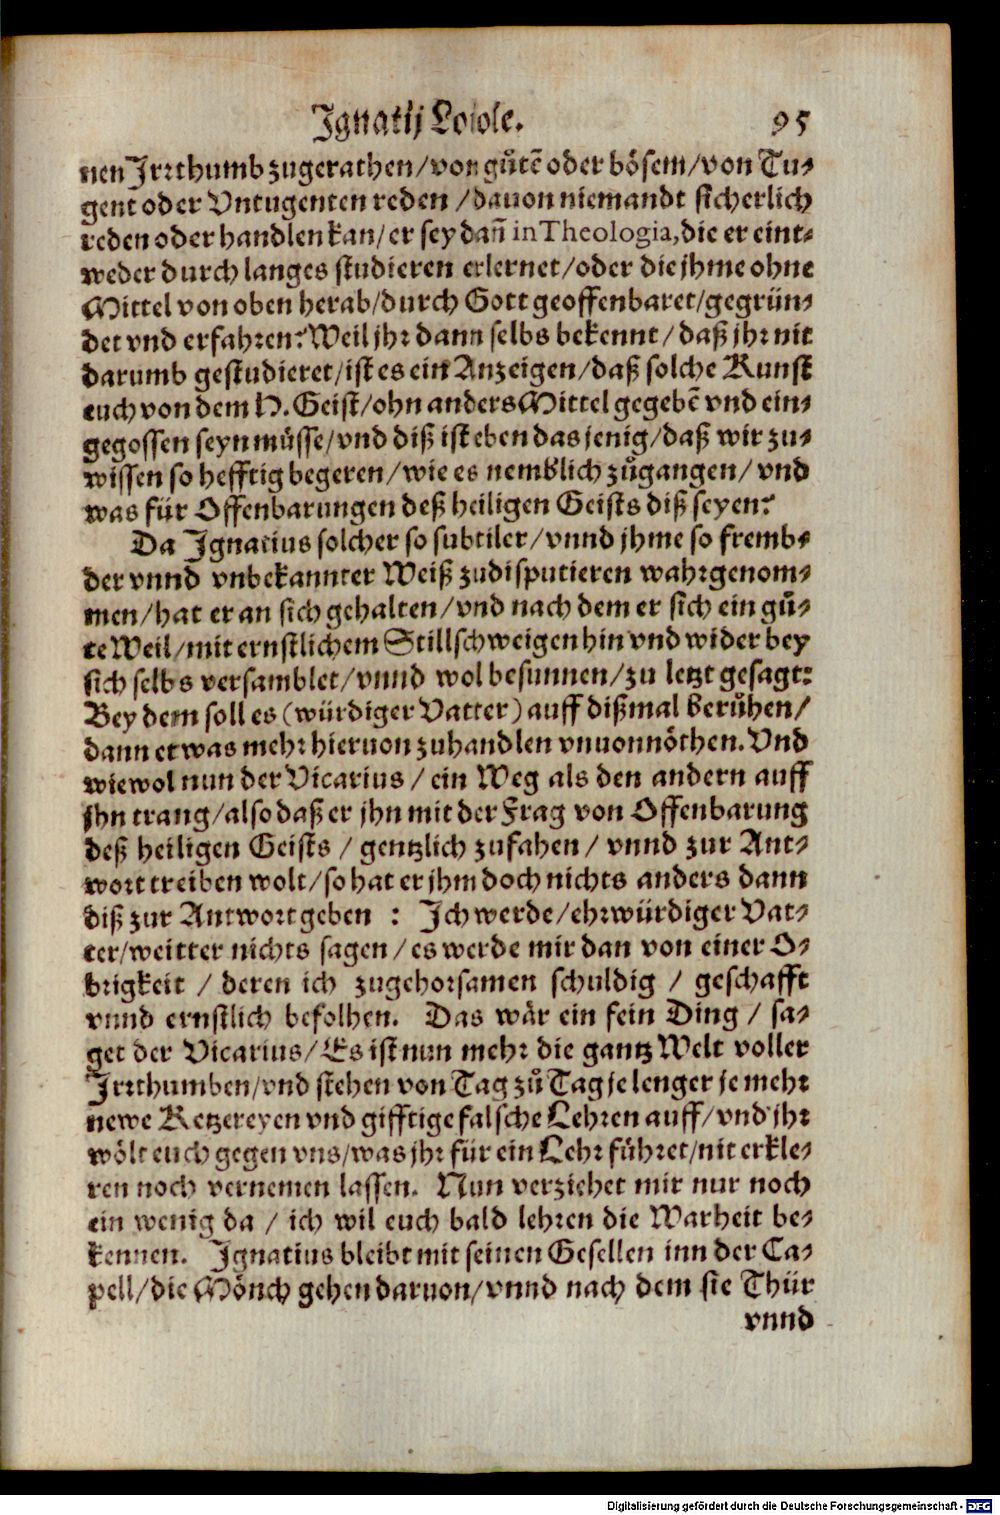 Ignatij Loiole. 95
nen Jrrthumb zugerathen/von gůtẽ oder bösem/von Tu-
gent oder Vntugenten reden /dauon niemandt sicherlich
reden oder handlen kan/er sey dañ in Theologia, die er eint-
weder durch langes studieren erlernet/oder die jhme ohne
Mittel von oben herab/durch Gott geoffenbaret/gegrün-
det vnd erfahren: Weil jhr dann selbs bekennt/daß jhr nit
darumb gestudieret/ist es ein Anzeigen/daß solche Kunst
euch von dem H. Geist/ohn anders Mittel gegebẽ vnd ein-
gegossen seyn müsse/vnd diß ist eben das jenig/daß wir zu-
wissen so hefftig begeren/wie es nemblich zůgangen/ vnd
was für Offenbarungen deß heiligen Geists diß seyen:
Da Ignatius solcher so subtiler/vnnd jhme so fremb-
der vnnd vnbekannter Weiß zudisputieren wahrgenom-
men/hat er an sich gehalten/vnd nach dem er sich ein gů-
te Weil/mit ernstlichem Stillschweigen hin vnd wider bey
sich selbs versamblet/vnnd wol besunnen/zu letzt gesagt:
Bey dem soll es (würdiger Vatter) auff dißmal berůhen/
dann etwas mehr hieruon zuhandlen vnuonnöthen. Vnd
wiewol nun der Vicarius / ein Weg als den andern auff
jhn trang/also daß er jhn mit der Frag von Offenbarung
deß heiligen Geists / gentzlich zufahen / vnnd zur Ant-
wort treiben wolt/so hat er jhm doch nichts anders dann
diß zur Antwort geben : Ich werde/ehrwürdiger Vat-
ter/weitter nichts sagen/es werde mir dan von einer O-
brigkeit / deren ich zugehorsamen schuldig / geschafft
vnnd ernstlich befolhen. Das wär ein fein Ding / sa-
get der Vicarius/Es ist nun mehr die gantz Welt voller
Jrrthumben/vnd stehen von Tag zů Tag je lenger je mehr
newe Ketzereyen vnd gifftige falsche Lehren auff/vnd jhr
wölt euch gegen vns/was jhr für ein Lehr führet/nit erkle-
ren noch vernemen lassen. Nun verziehet mir nur noch
ein wenig da / ich wil euch bald lehren die Warheit be-
kennen. Ignatius bleibt mit seinen Gesellen inn der Ca-
pell/die Mönch gehen daruon/vnnd nach dem sie Thür
vnnd
Digitalisierung gefördert durch die Deutsche Forschungsgemeinschaft - DFG